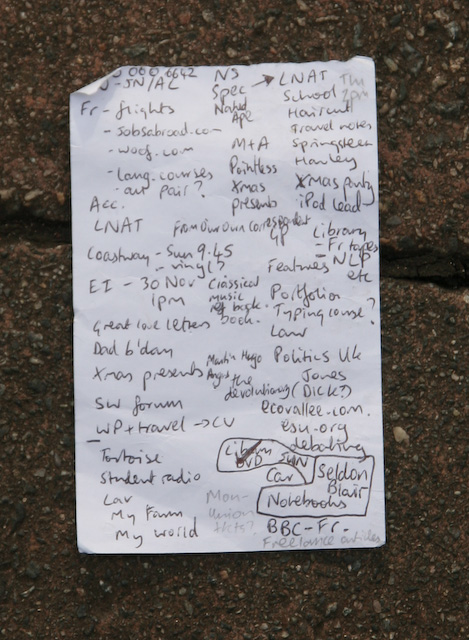 000 6642
J - JN/AL
Fr - flights
- jobsabroad.com
- woof.com
- lang. courses
- aur pair?
Acc.
LNAT
Coastway - Sun 9.45
- vinyl?
EI - 30 Nov
1pm
Great love letters book.
Dad b'day
Xmas presents
SW forum
WP + travel → CV
Tortoise
Student radio
Car
My Farm
My world
NS
Spec
Naked
Ape
M+A
Pointless
Xmas
presents
From Our Own Correspondent
Classical
music
book.
Martin Hugo
Angus
the
devolutionary (DICK?)
→ LNAT
School
Thu
2pm
Haircut
Travel notes
Springsteen
Hawley
Xmas party
iPod lead
GP
Library
- Fr tapes
Features - NLP
etc
Portfolio
Typing course?
Law
Politics UK
Jones
ecovallee.com.
esu.org
debating
DVD
Sun
Car
Seldon
Blair
Notebooks
Mon -
Union
tkts?
BBC - Fr.
Freelance articles